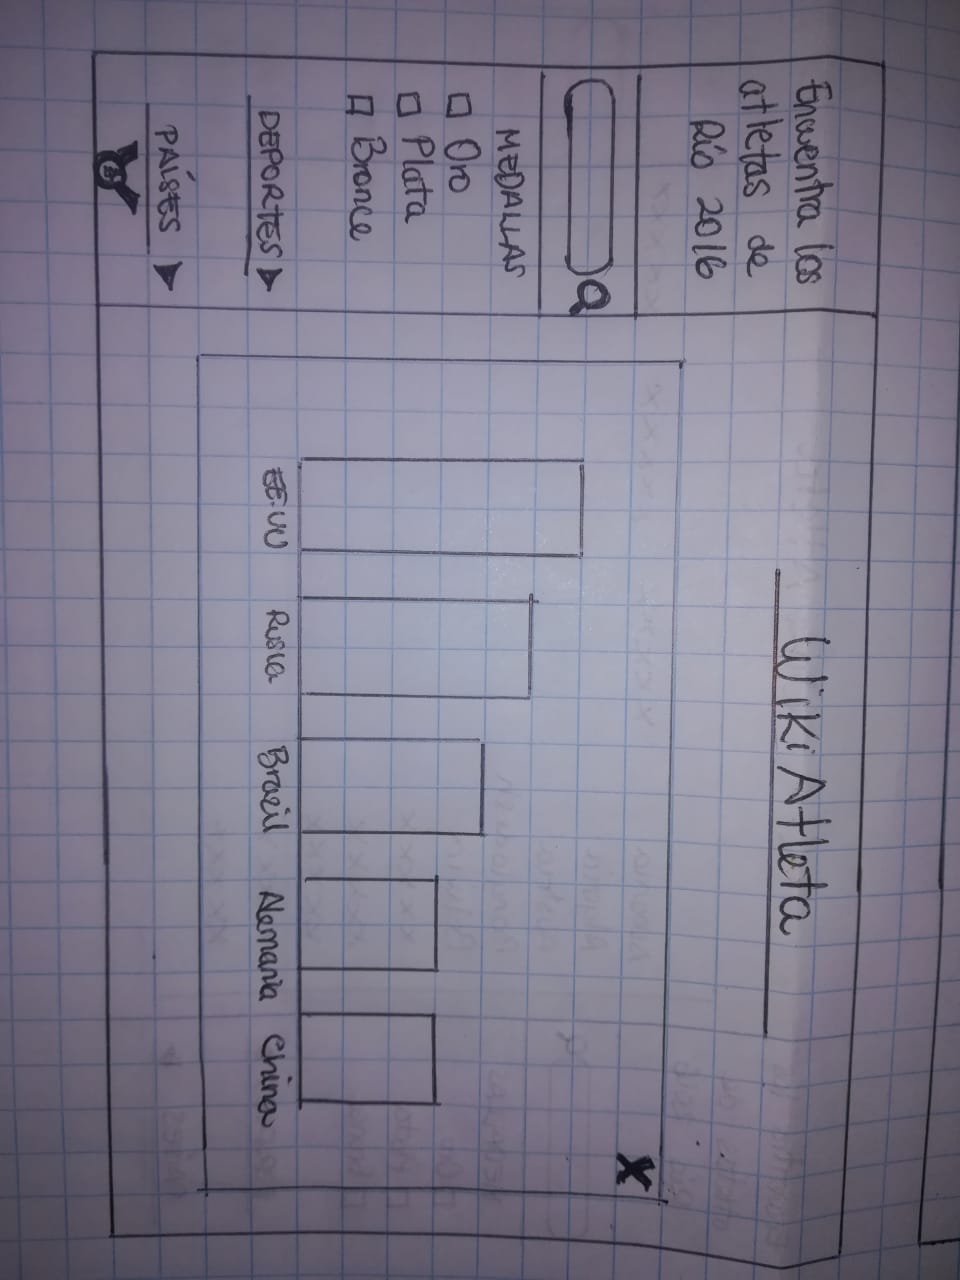 Encuentra los
atletas de
Río 2016
MEDALLAS
Oro
Plata
Bronce
DEPORTES
PAÍSES
Wiki Atleta
X
EE.UU
Rusia
Brazil
Alemania
China